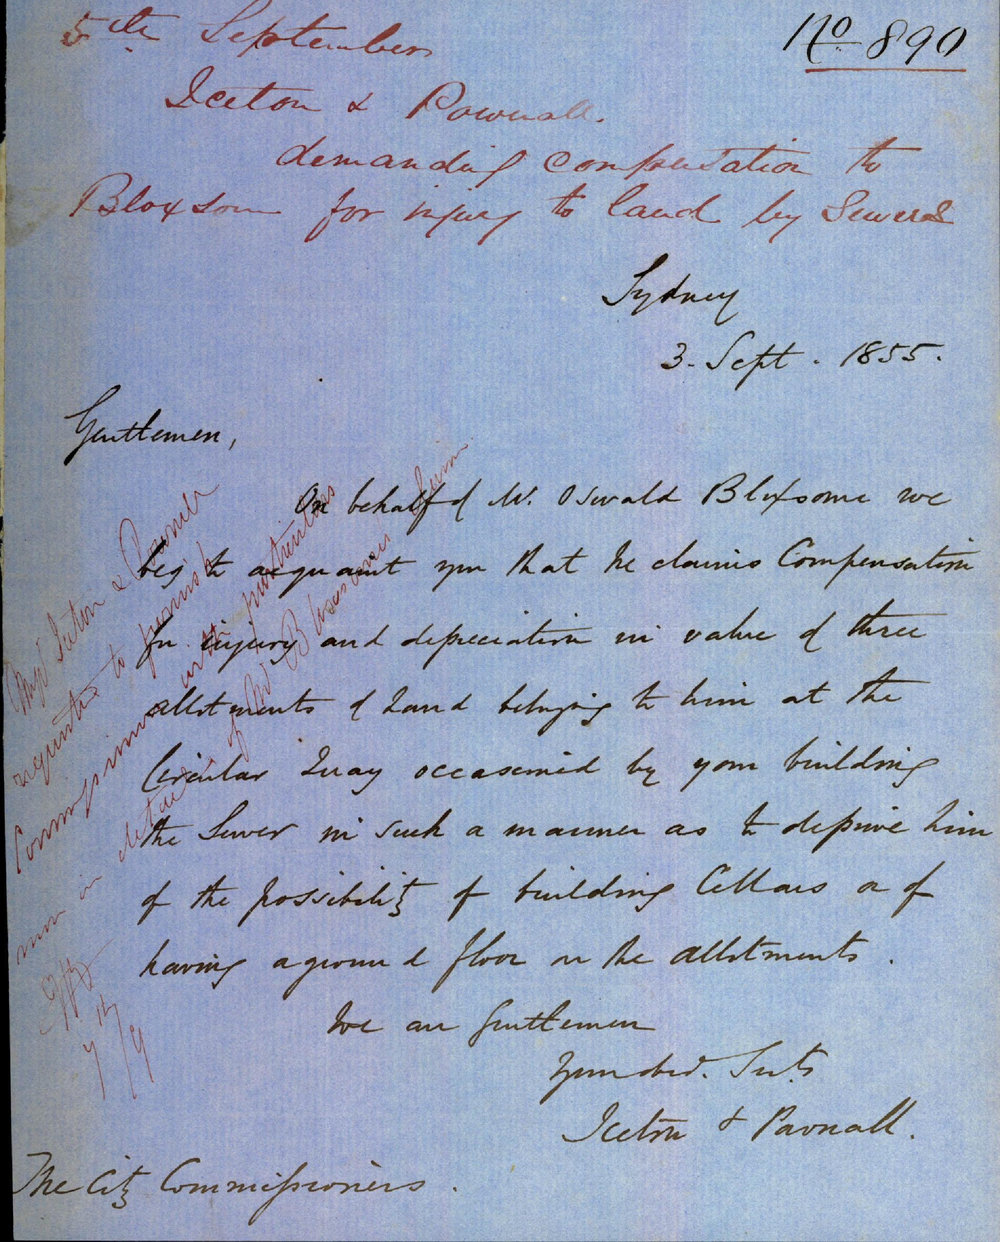 5th September
No 890
Iceton & Pownall.
demanding compensation to
Bloxsom for injury to land by Sewers
Sydney
3. Sept. 1855.
Gentlemen,
On behalf of Mr. Oswald Bloxsome we
beg to acquaint you that he claims Compensation
for injury and depreciation in value of three
allotments of Land belonging to him at the
Circular Quay occasioned by your building
the Sewer in such a manner as to deprive him
of the possibility of building Cellars or of
having a ground floor on the allotments.
We are Gentlemen
Your obed. Servts
Iceton & Pownall.
The City Commissioners.
Iceton &
requested to furnish
Commissioners with particulars
in detail of Mr Bloxsomes claim
7/9